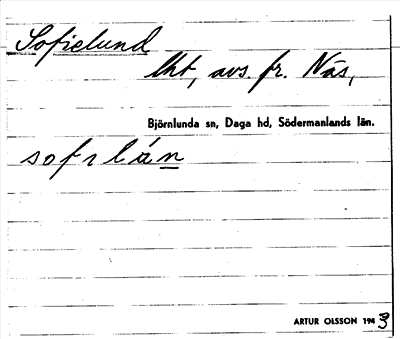 Sofielund
lht, avs. fr. Näs,
Björnlunda sn, Daga hd, Södermanlands län.
sofrlán
ARTUR OLSSON 1943